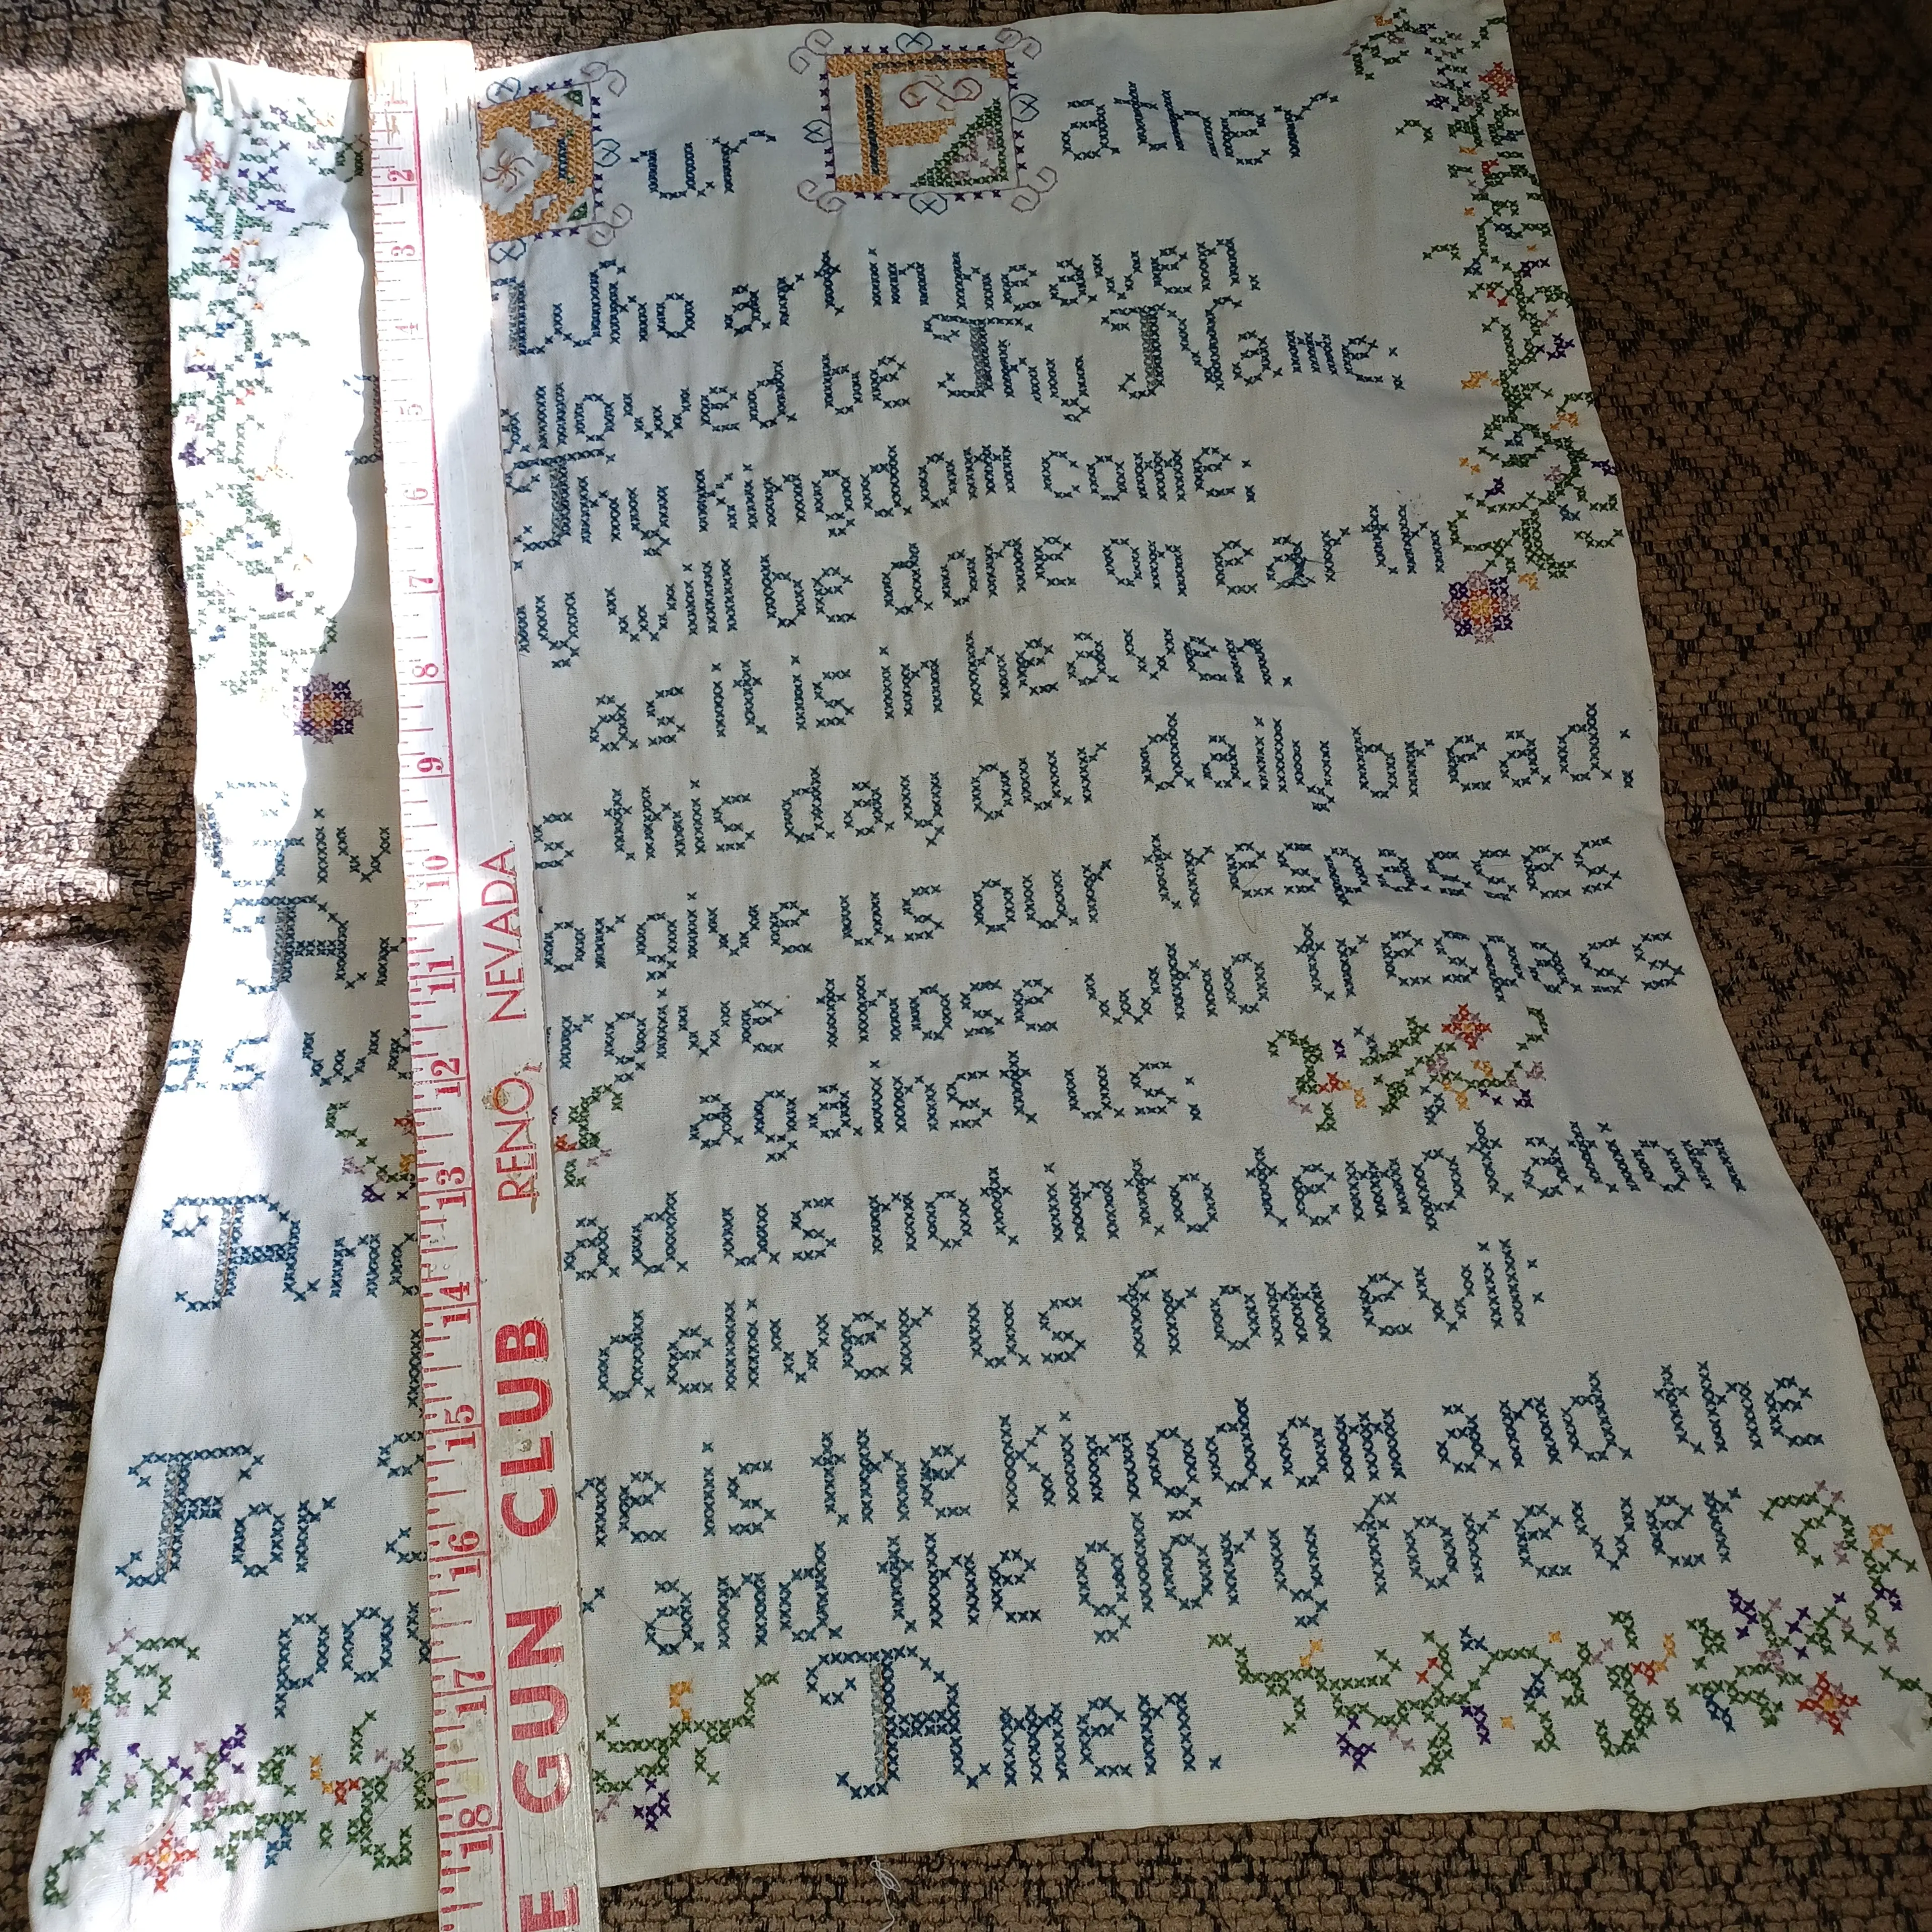 Our Father
Who art in heaven,
llowed be Thy Name.
Thy kingdom come.
y will be done on earth
as it is in heaven.
this day our daily bread.
And forgive us our trespasses
as we forgive those who trespass
against us.
And lead us not into temptation
deliver us from evil.
For is the kingdom and the
and the glory forever
Amen.
1
2
3
4
5
6
7
8
9
10
11
12
13
14
15
16
17
18
RENO, NEVADA
E GUN CLUB